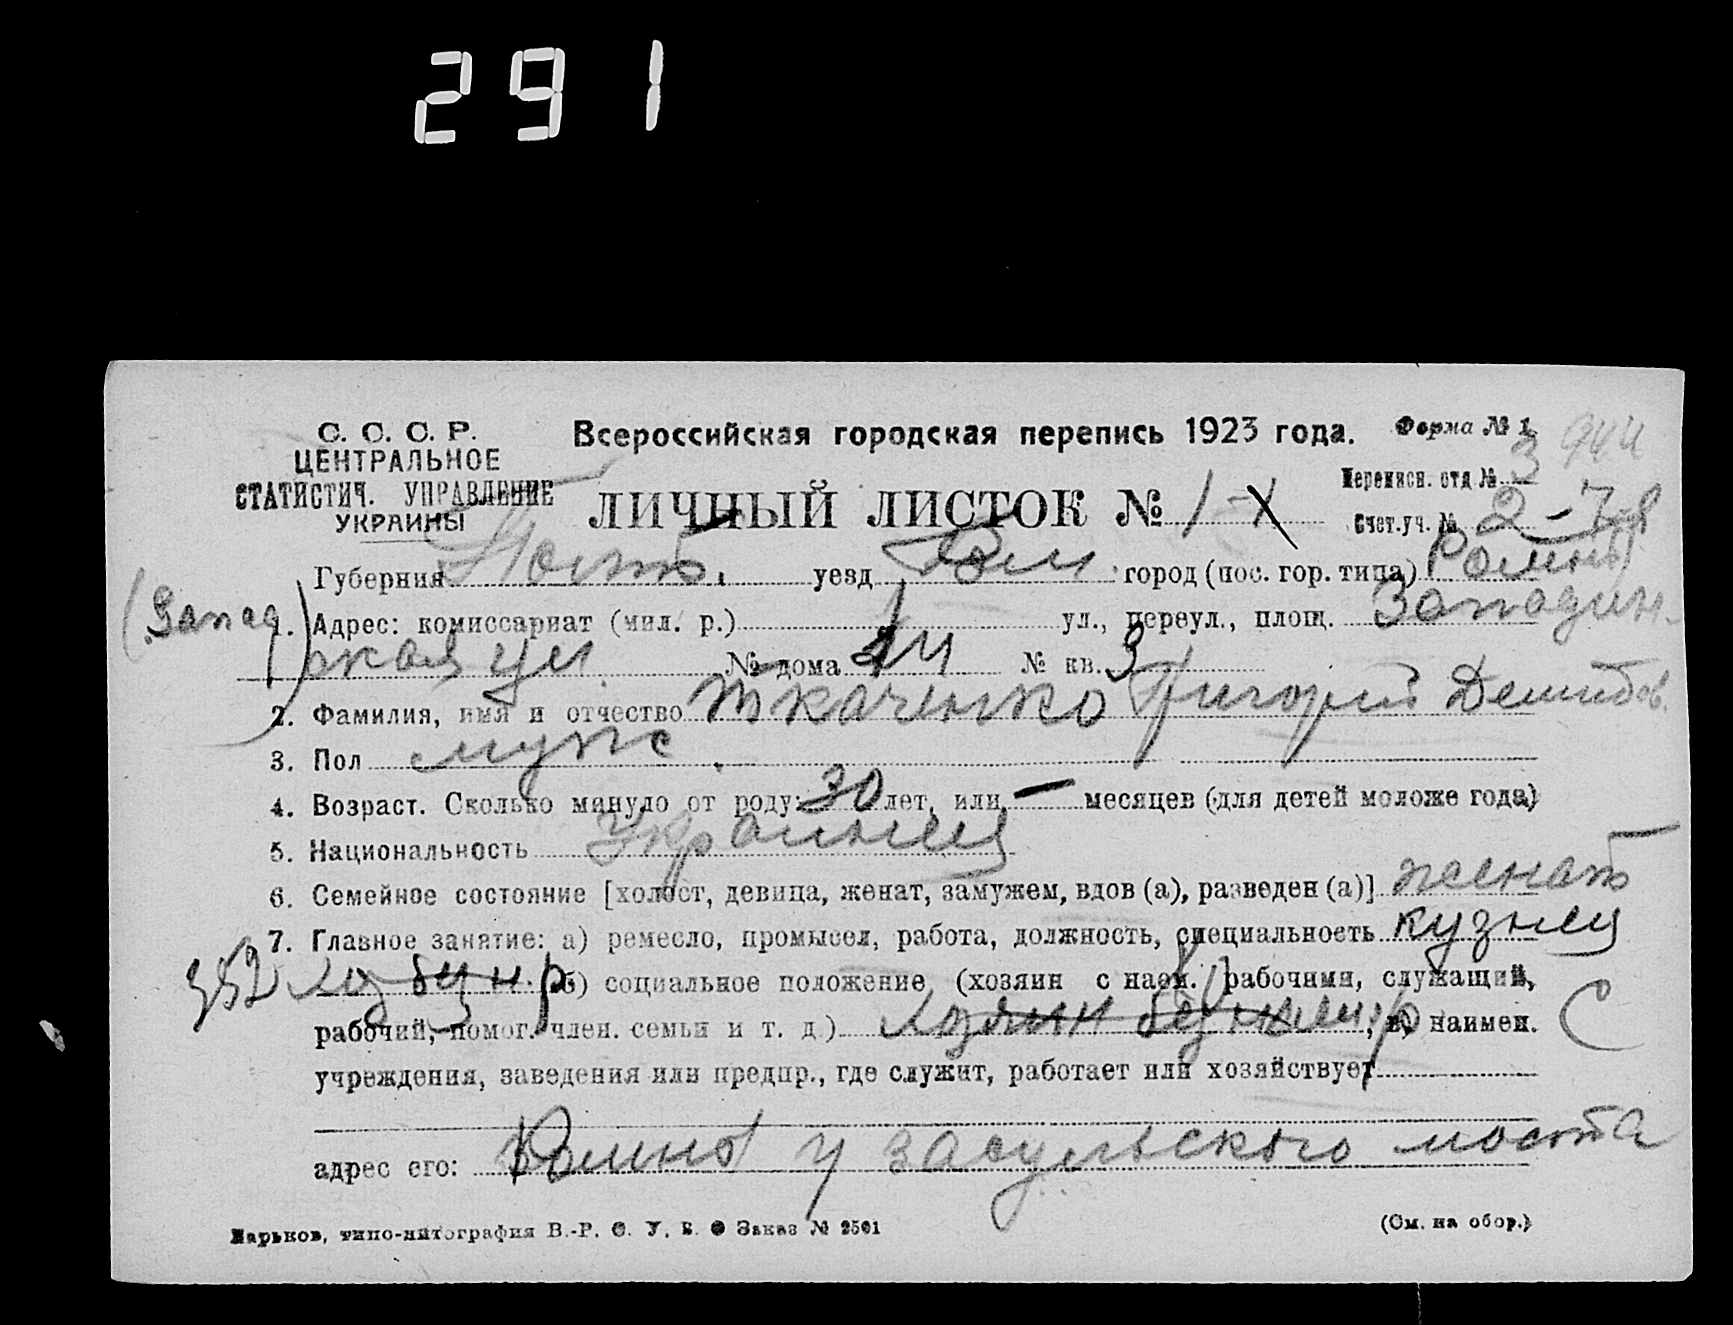 291
С. С. С. Р.
ЦЕНТРАЛЬНОЕ
СТАТИСТИЧ. УПРАВЛЕНИЕ
УКРАИНЫ
Всероссийская городская перепись 1923 года.
Форма № 1
944
ЛИЧНЫЙ ЛИСТОК № 1
Переписн. отд. № 3
Счет. уч. № 2-7-8
Губерния Полт. уезд Ром город (пос. гор. типа) Ромны
(Запад.) 1. Адрес: комиссариат (мил. р.) ул., переул., площ. Западин-
ская ул. № дома 24 № кв. 3
2. Фамилия, имя и отчество Ткаченко Григорий Демидов.
3. Пол мужс
4. Возраст. Сколько минуло от роду: 30 лет, или — месяцев (для детей моложе года)
5. Национальность Украинец
6. Семейное состояние [холост, девица, женат, замужем, вдов (а), разведен (а)] женат
7. Главное занятие: а) ремесло, промысел, работа, должность, специальность кузнец
352 хоз без н. р. б) социальное положение (хозяин с наем. рабочими, служащий,
рабочий, помог. член. семьи и т. д.) хозяин без наем. р в) наимен. С
учреждения, заведения или предпр., где служит, работает или хозяйствует
адрес его: Ромны у засульского моста
Харьков, типо-литография В.-Р. С. У. Заказ № 2501
(См. на обор.)